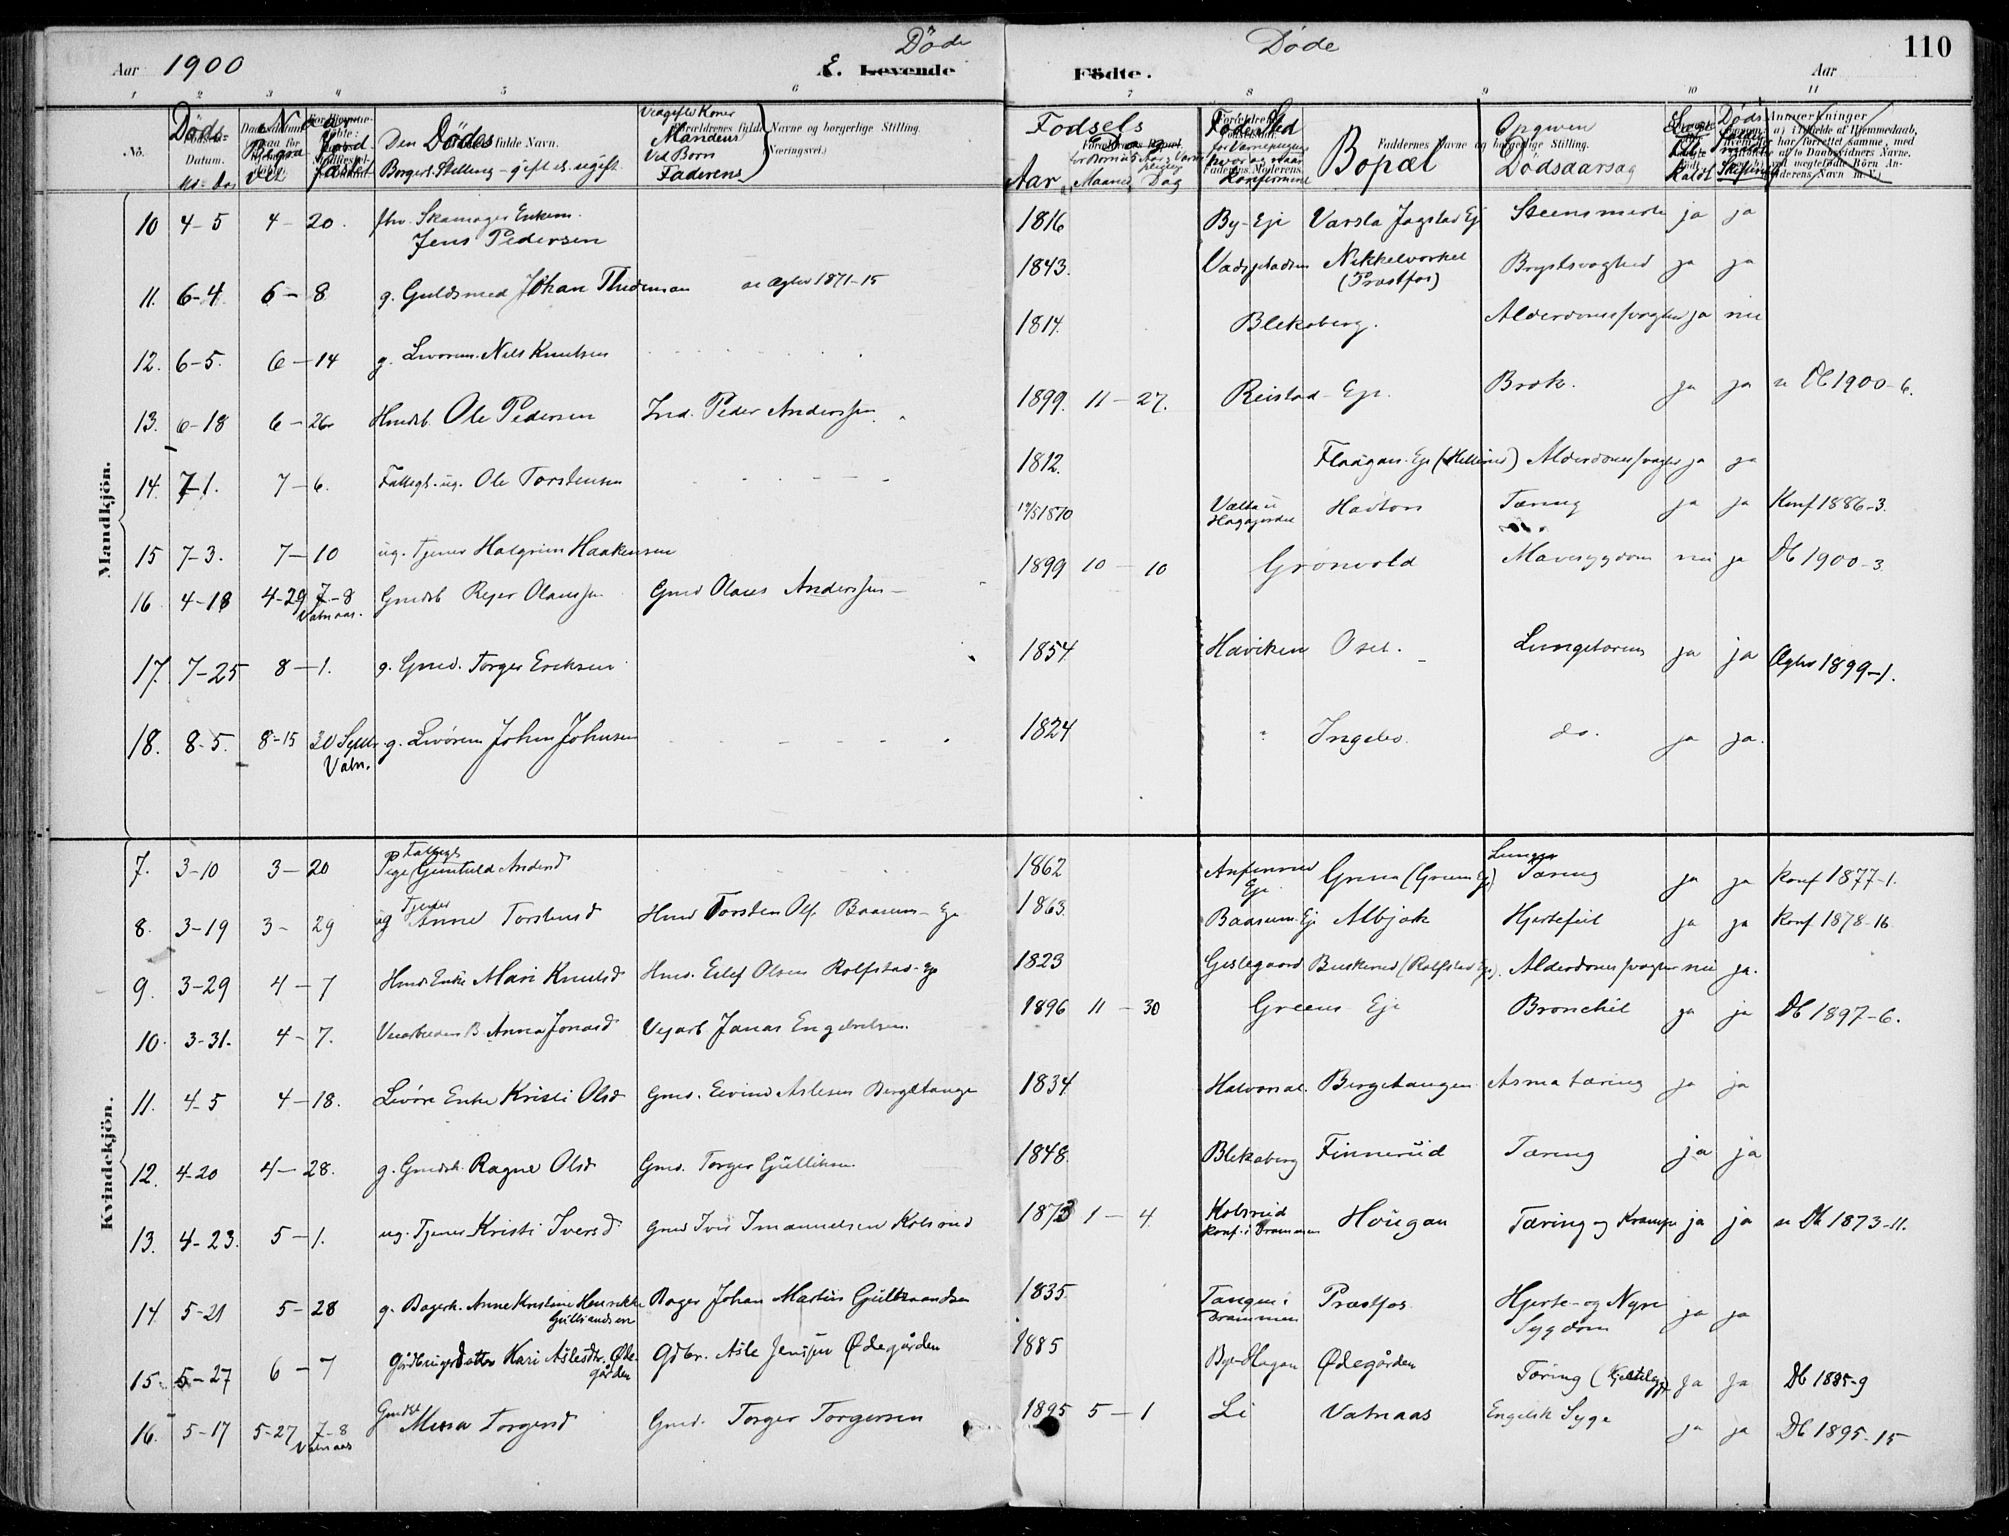 Aar 1900
Døde
E. Levende
Døde
Födte.
Aar
110
1 2 3 4 5 6 7 8 9 10 11
No.
Døds
Datum.
Begra
vet
Jord
fæstet
Den Dødes fulde Navn.
Borgerl. Stilling - gift el. ugift
Ved gifte Koner
Mandens
Ved Børn
Faderens
Forældrenes fulde Navne og borgerlige Stilling.
(Næringsvei.)
Fødsels
Aar Maaned Dag
Føde Sted
Bopæl
Faddernes Navne og borgerlige Stilling.
Opgiven
Dødsaarsag
Anmerkninger
Mandkjön.
10 4-5 4-20. fhv. Skomager Enkem. Jens Pedersen 1816 By-Eje Varsla Jagstad Ej Steensmerte ja ja
11. 6-4 6-8 g. Guldsmed Johan Thideman se Ægtev 1871-15 1843. Vadspladsen Nikkelverket (Præstfos) Brystsvaghed ja ja
12. 6-5. 6-14 g. Livøren. Nels Knudsen 1814. Blekeberg. Alderdomssvaghed ja nei
13. 6-18 6-26 Hmdsb. Ole Pedersen Ind. Peder Anderssen 1899. 11-27. Reistad Eje. Brok. ja ja se Db 1900-6.
14. 7-1. 7-6. Fattegl. ug. Ole Torstensen 1812. Flaagan-Eje (Hellerud) Alderdomssvaghed ja ja
15 7-3. 7-10 ug. Tjener Halgrim Haakensen 17/5 1870 Hagajordet Havton Tæring ja ja Konf 1886-3.
16 4-18 4-29 7-8 Vatnaas. Gmdsb Rejer Olaussen Gmd Olaus Anderssen 1899 10-10 Grønvold Mavesygdom nei ja Db 1900-3
17. 7-25 8-1. g. Gmd. Torger Eriksen 1854 Haviken Oset. Lungetæring ja ja Ægtev 1899-1.
18. 8-5. 8-15 30 Septb Vatn. g. Livøren Johan Johnsen 1824 " Ingebo. do. ja ja.
Kvindekjön.
7. 3-10 3-20 Fattegl Pige Gunhild Andersd 1862 Anfinnrud Eje. Grena (Green Eje) Lunge Tæring ja ja Konf 1877-1.
8. 3-19 3-29 ug Tjener Anne Torstensd Hmd Torsten Ols Baasum-Eje 1863. Baasum-Ej Albjerk Hjertefeil ja ja Konf 1878-16
9. 3-29 4-7 Hmds Enke Mari Knudsd Hmd. Eilef Olsen Rolfstad-Eje 1823 Geslegaard Buskerud (Rolfstad Eje) Alderdomssvaghed nei ja.
10. 3-31. 4-7. Veiarbeiders B. Anna Jonasd Vejarb Jonas Engebretsen. 1896 11-30 Greens Eje Bronchit ja ja Db 1897-6.
11. 4-5 4-18. Livøre Enke Kristi Olsd Gmd. Eivind Aslesen Bergetange 1834. Halvorsæt. Bergetangen Asma tæring ja ja
12. 4-20 4-28. g. Gmdsk. Ragne Olsd. Gmd. Torger Gulliksen 1848. Blekeberg Finnerud Tæring ja ja
13. 4-23. 5-1. ug. Tjener Kristi Iversd Gmd Iver Imanuelsen Kolsrud 1873 1-4. Kolsrud Konf. i Drammen Hougan Tæring og Krampe ja ja se Db 1873-11.
14 5-21 5-28 g. Bagerk. Anne Kristine Henrikke Gulbrandsen Bager Johan Martin Gulbrandsen 1835. Tangen i Drammen Præstfos Hjerte- og Nyre Sygdom ja ja
15. 5-27 6-7 Gårdbrugerdatter Kari Aslesdtr. Ødegården Gdbr. Asle Jenssen Ødegården 1885 Bye-Hagan Ødegården Tæring ja ja Db 1885-9
16. 5-17 5-27 7-8 Vatnaas Gmdsb Mina Torgersd Gmd. Torger Torgersen 1895 5-1 Li Vatnaas Engelsk Syge ja ja Db 1895-15